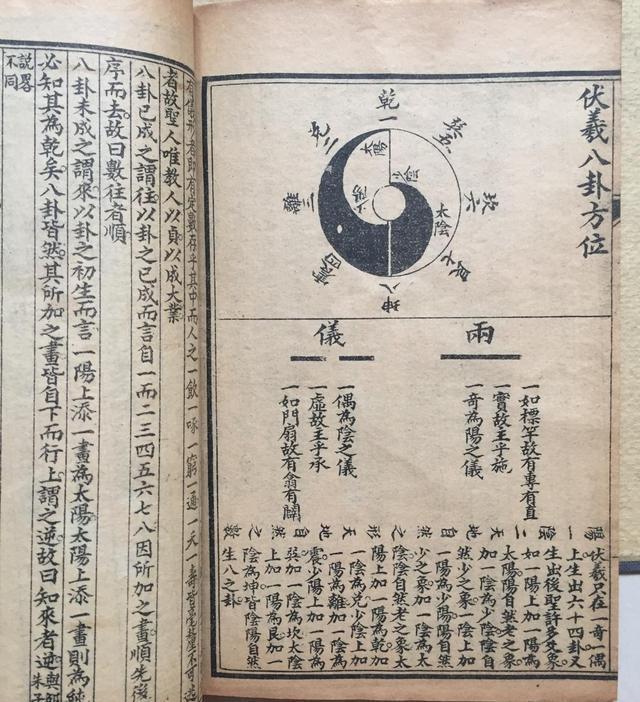 伏羲八卦方位
乾一
兌二
離三
震四
巽五
坎六
艮七
坤八
太陽
少陰
少陽
太陰
兩儀
一如標竿故有專有直
一實故主乎施
一奇為陽之儀
一偶為陰之儀
一虛故主乎承
一如門扇故有翕有闢
伏羲只在一奇一偶
上生出六十四卦又
生出後聖許多爻象
如一陽上加一陽為
太陽陽自然老之象
加一陰為少陰陽自
然少之象一陰上加
一陽為少陽陽自然
少之象加一陰為太
陰陰自然老之象太
陽上加一陽為乾加
一陰為兌少陰上加
一陽為離加一陰為
震少陽上加一陽為
巽加一陰為坎太陰
上加一陽為艮加一
陰為坤皆陰陽自然
生八之卦
有儀形者即有定數存乎其中而人之一飲一啄一窮一通一夭一壽皆毫釐不可逃
者故聖人唯教人以貞以成大業
八卦已成之謂往以卦之已成而言自一而二三四五六七八因所加之畫順先後
序而去故曰數往者順
八卦未成之謂來以卦之初生而言一陽上添一畫為太陽太陽上添一畫則為純
必知其為乾矣八卦皆然其所加之畫皆自下而行上謂之逆故曰知來者逆與
朱子
說畧不同